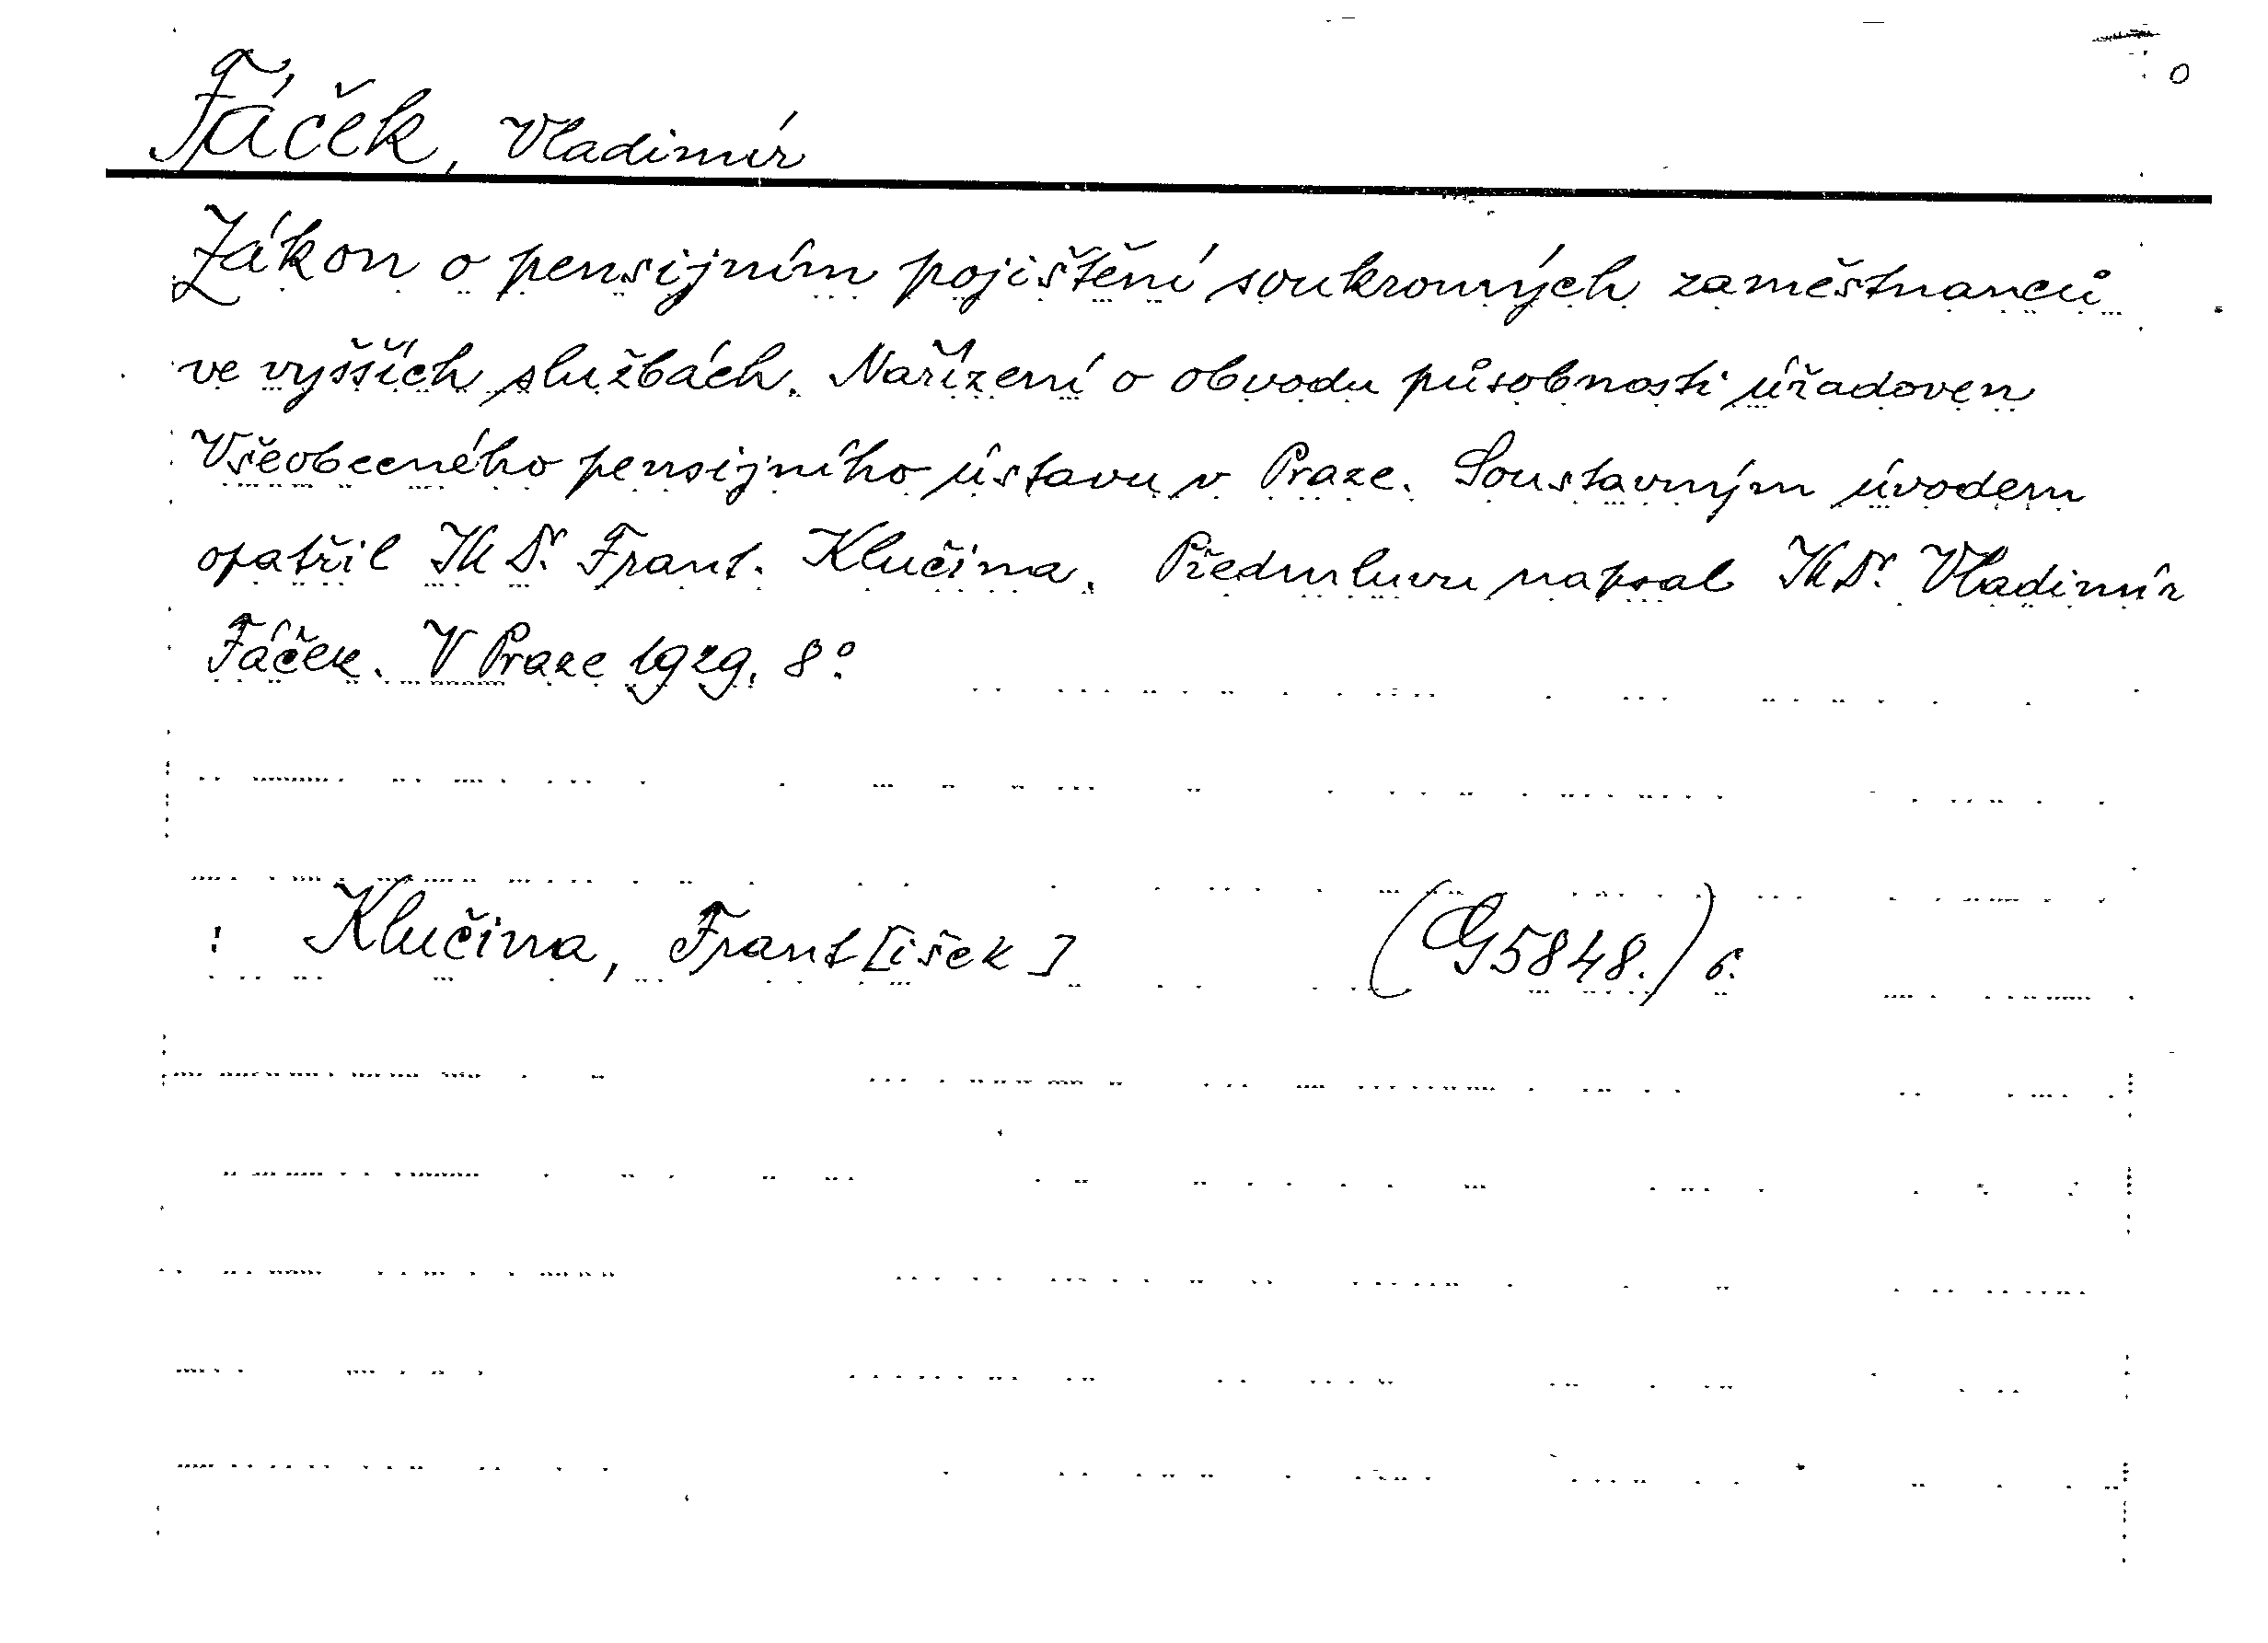 Fáček, Vladimír
Zákon o pensijním pojištění soukromých zaměstnanců
ve vyšších službách. Nařízení o obvodu působnosti úřadoven
Všeobecného pensijního ústavu v Praze. Soustavným úvodem
opatřil JUDr. Frant. Klučina. Předmluvu napsal JUDr. Vladimír
Fáček. V Praze 1929. 8°.
Klučina, Frant[išek] (G5848.) 6.